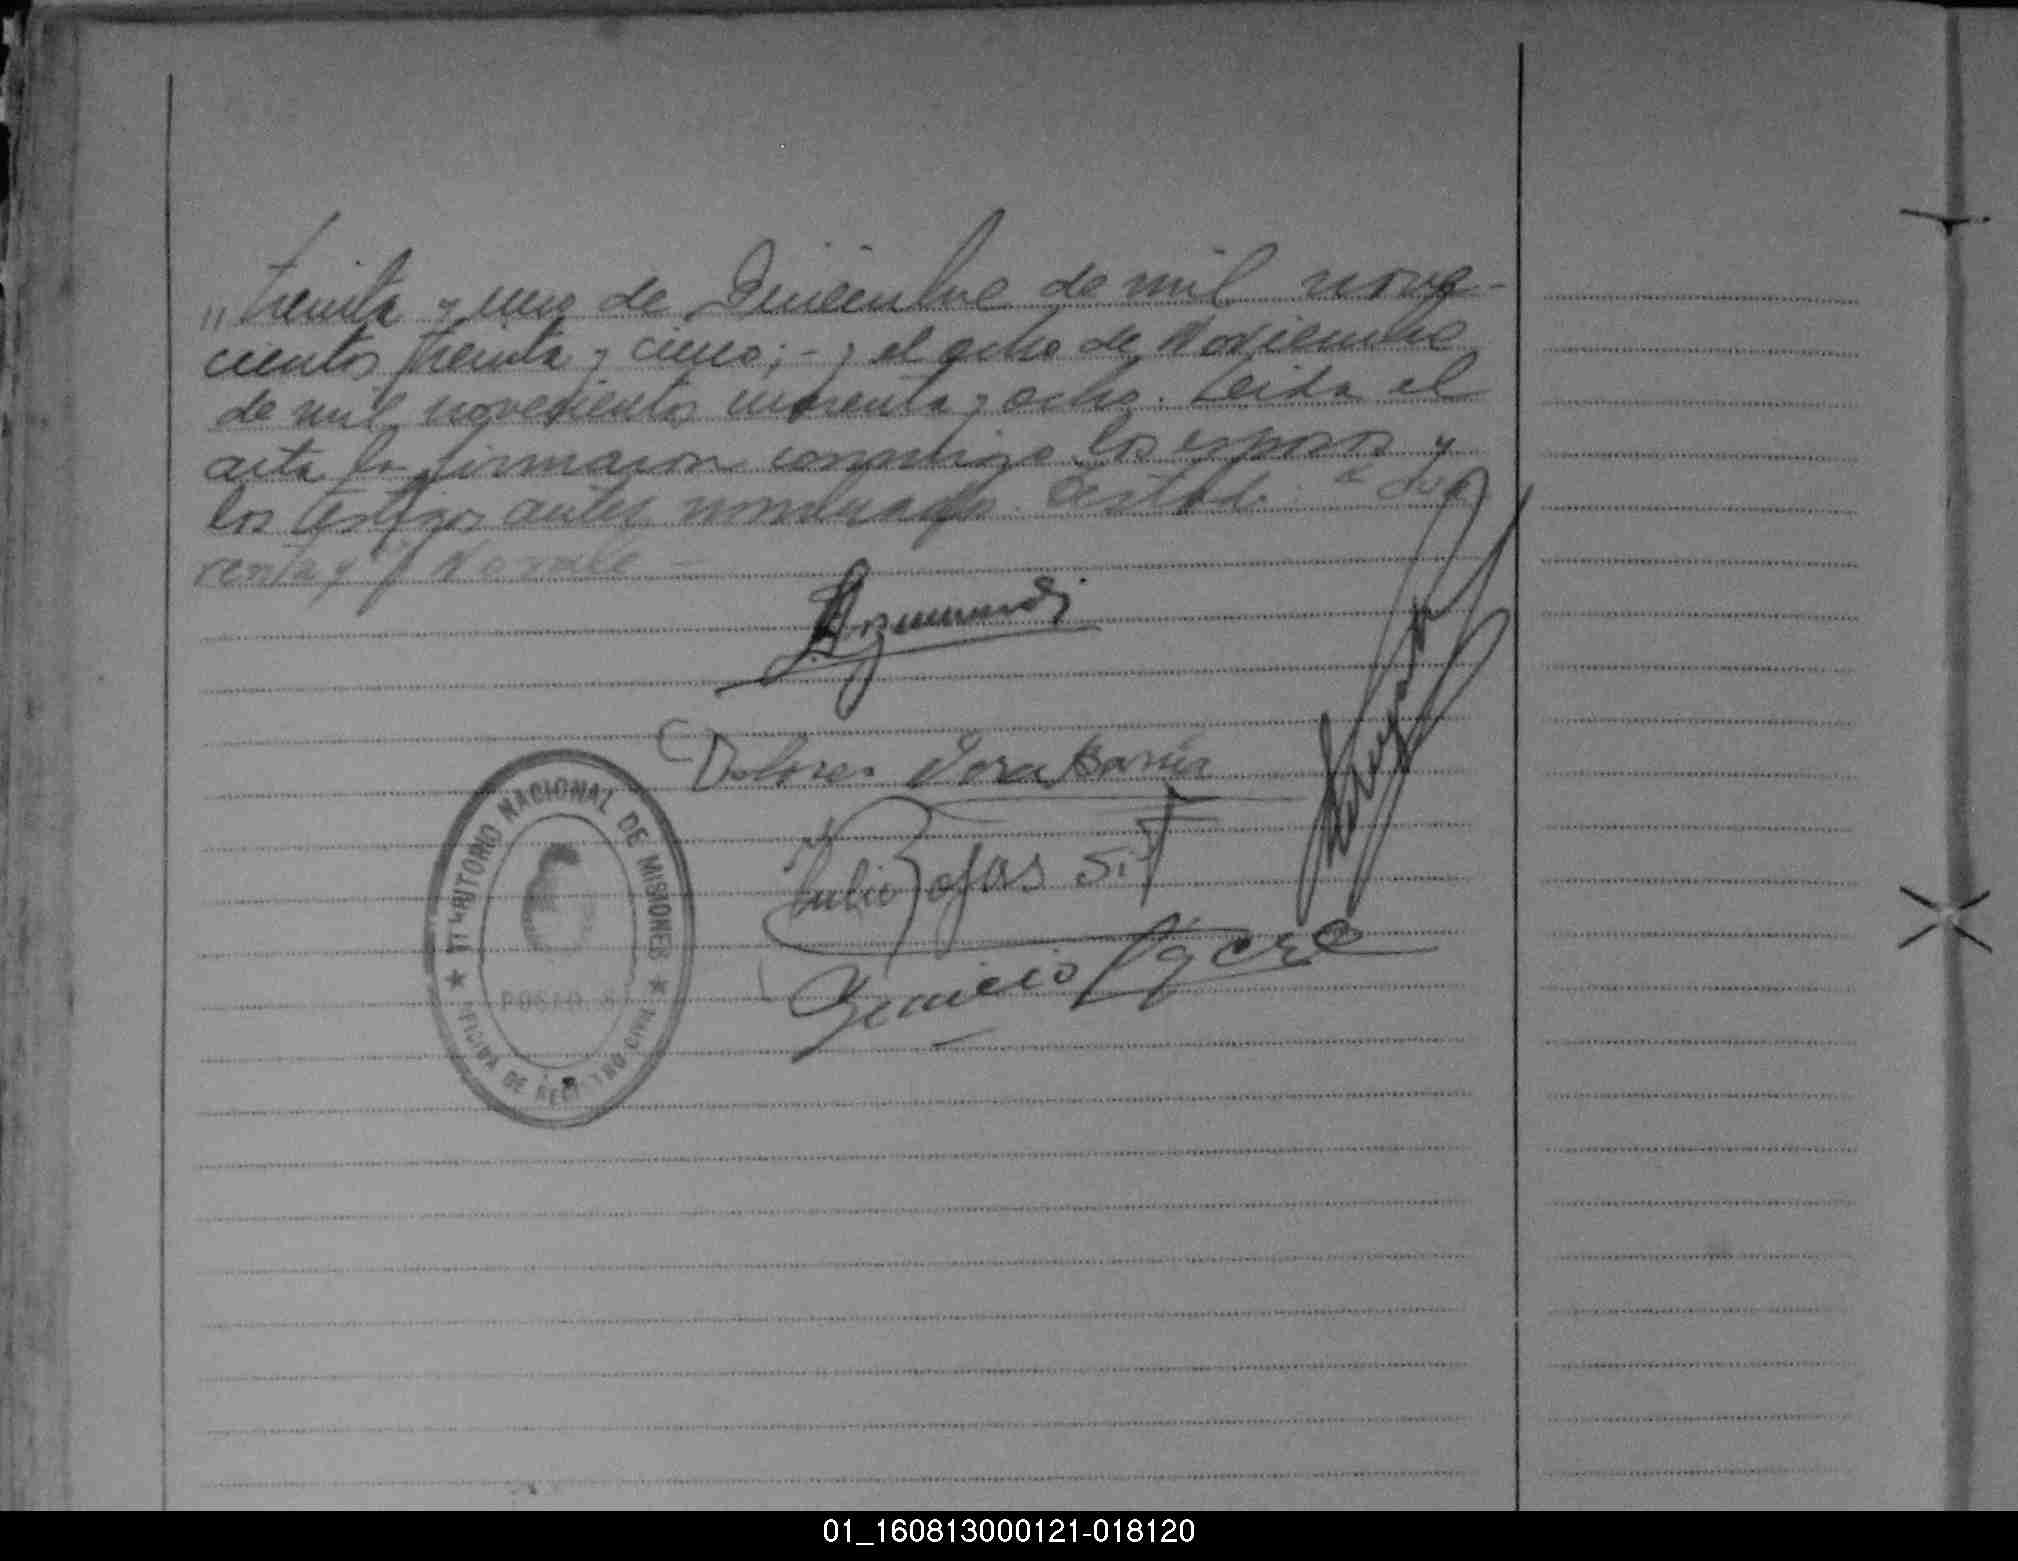 „ treinta y uno de Diciembre de mil nove-
cientos treinta y cinco; - y el ocho de Noviembre
de mil novecientos cuarenta y ocho. Leida el
acta la firmaron conmigo los esposos y
los testigos antes nombrados. Testado:
renta y No vale -
Dolores
Julio Rojas
TERRITORIO NACIONAL DE MISIONES
POSADAS
OFICINA DE REGISTRO CIVIL
01_160813000121-018120